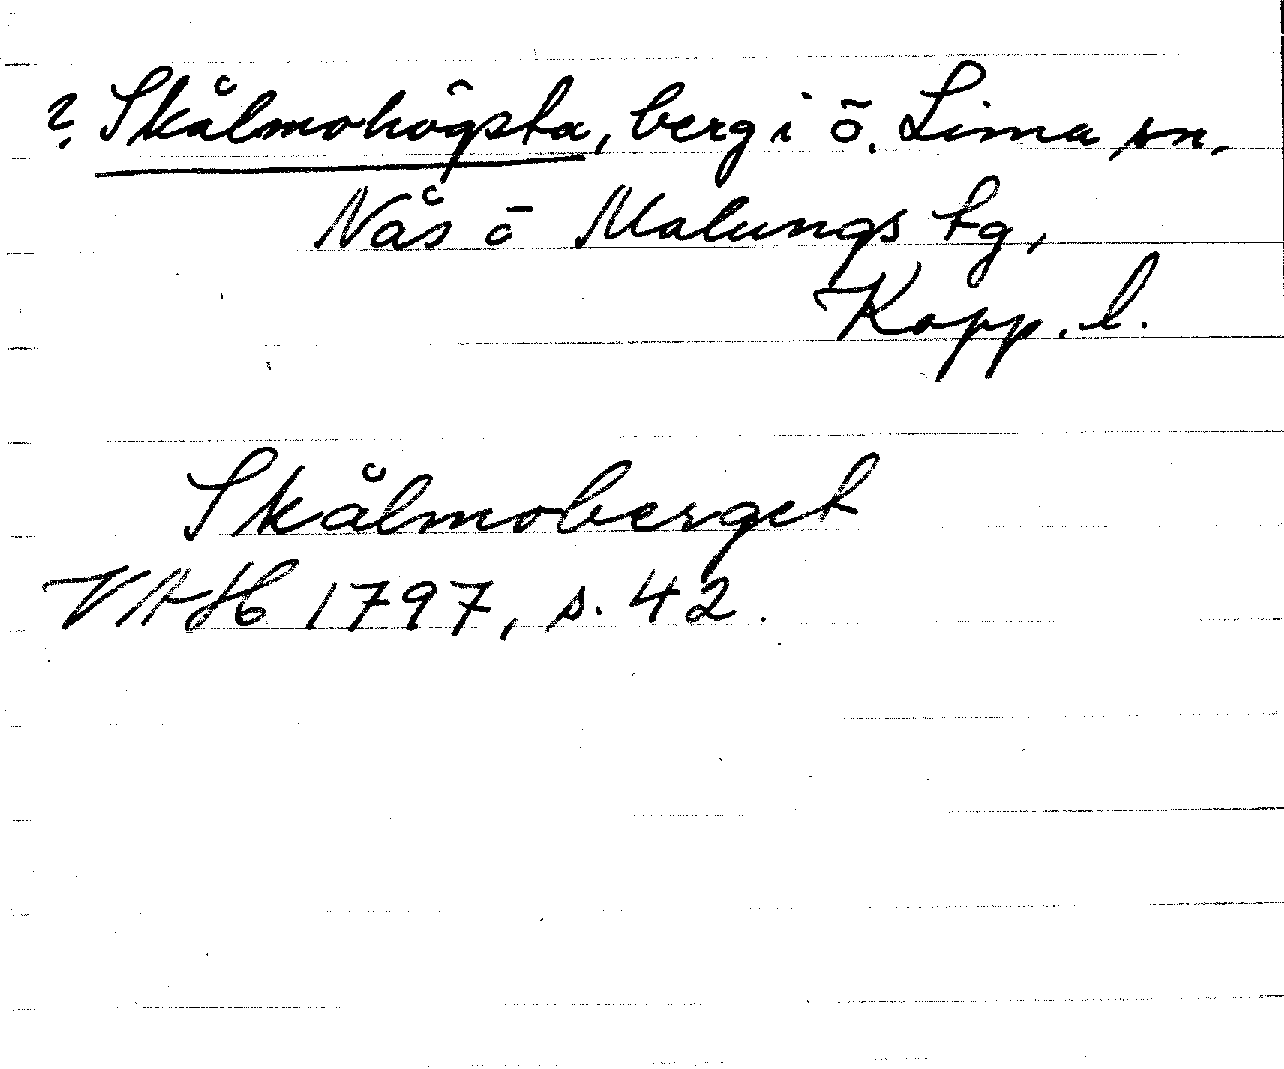 ? Skålmohögsta, berg i ö. Lima sn.
Nås ō Malungs tg,
Kopp. l.
Skålmoberget
VAH 1797, s. 42.